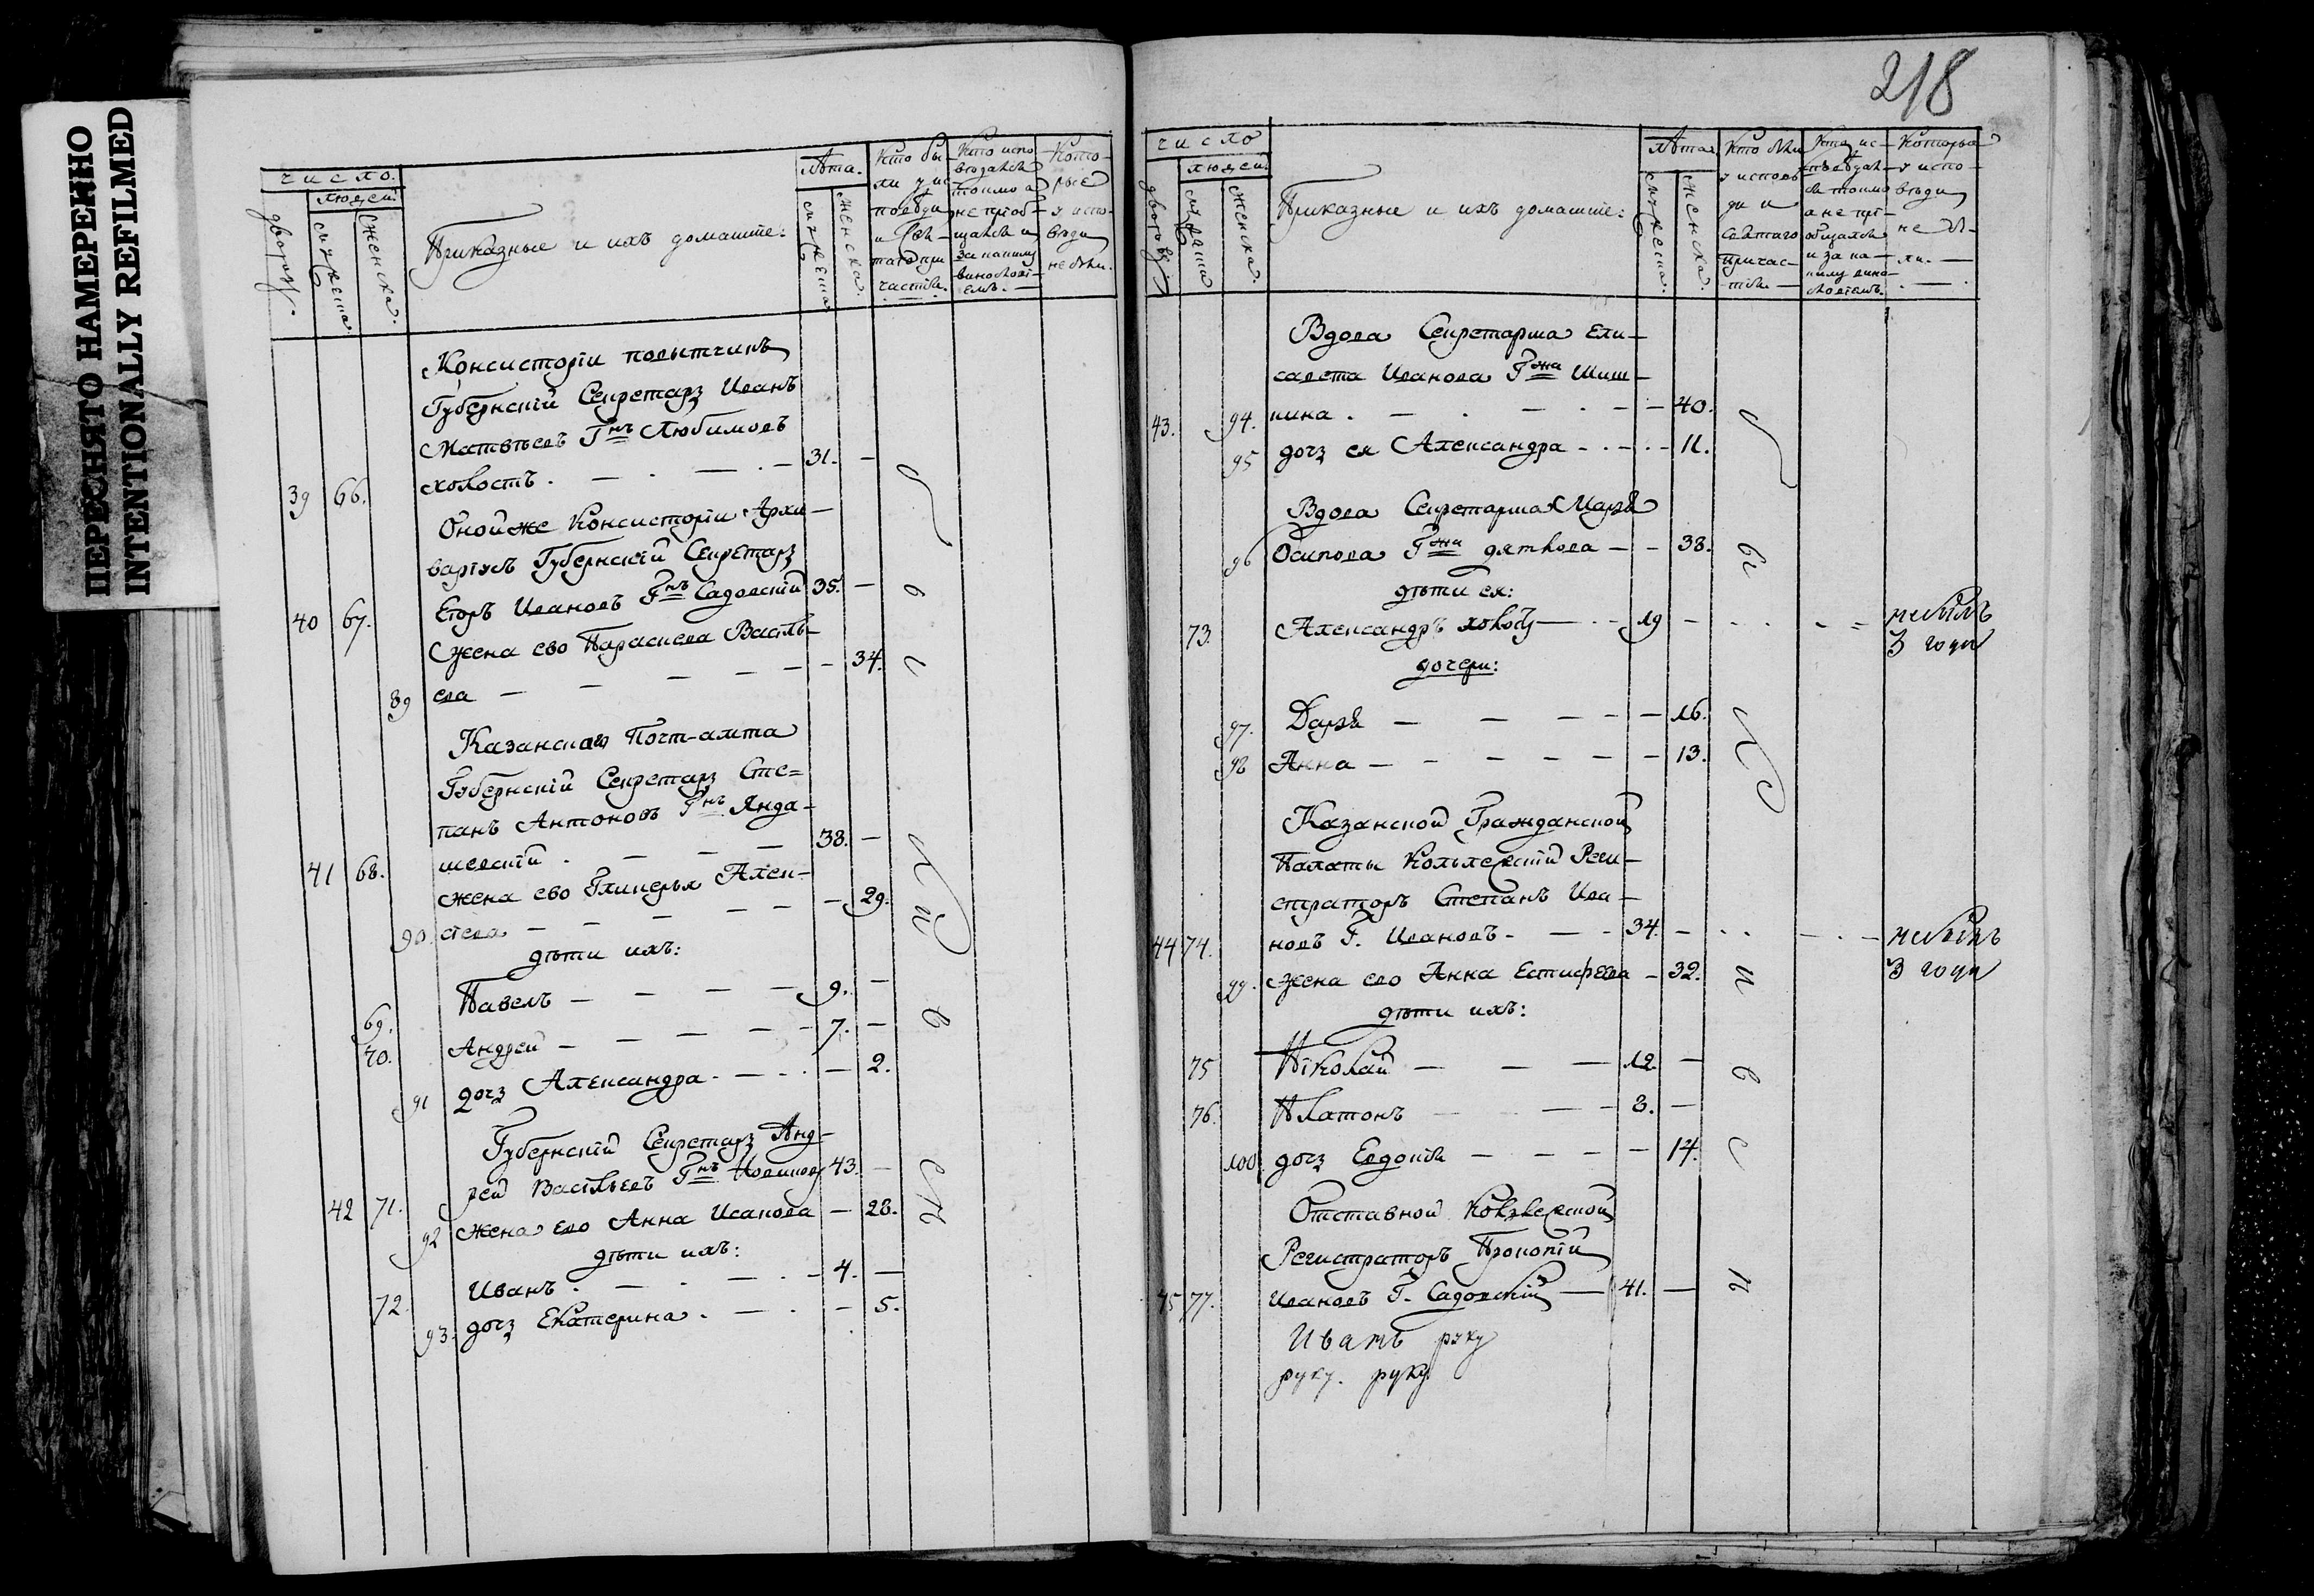 ПЕРЕСНЯТО НАМЕРЕННО
INTENTIONALLY REFILMED
число.
людей.
дворовъ.
мужеска.
женска.
Приказные и ихъ домашніе:
Лѣта.
мужеска
женска.
Кто бы-
ли у ис
повѣди
и Свя-
таго при
частія.
Кто испо
вѣдался
токмо а
не пріоб-
щался и
за какимъ
винословї-
емъ.
Кото-
рые
у испо-
вѣди
не были.
Консисторіи повытчикъ
Губернскій Секретарь Иванъ
Матвѣевъ Гнъ Любимовъ
39 66. холостъ . — . — . — 31. —
Оной же Консисторіи Архи-
варіусъ Губернскій Секретарь
40 67. Егоръ Ивановъ Гнъ Садовскій 35. —
Жена ево Параскева Василь-
89 ева — — — — — 34.
Казанскаго Почт-амта
Губернскій Секретарь Сте=
панъ Антоновъ Гнъ Янда-
41 68. шевскій . — — — 38. —
жена ево Гликерья Алек-
90. сѣева — — — — — 29.
дѣти ихъ:
69. Павелъ — — — — 9. —
70. Андрей — — — — 7. —
91 дочь Александра . — . . — 2.
Губернскій Секретарь Анд-
42 71. рей Васильевъ Гнъ 43. —
92 жена ево Анна Исакова — 28.
дѣти ихъ:
72. Иванъ . — . — . — 4. —
93. дочь Екатерина . — . — 5.
218
число
людей
дворовъ
мужеска
женска.
Приказные и ихъ домашніе:
Лѣта
мужеска.
женска.
Кто были
у исповѣ-
ди и
Святаго
причас-
тія. —
Кто ис-
повѣдал-
ся токмо
а не прі-
общался
и за ка-
кимъ вино-
словіемъ.
Которые
у испо-
вѣди
не бы-
ли. —
Вдова Секретарша Ели-
савета Иванова Гжа Шиш-
43. 94. кина . — . — . — — 40.
95 дочь ея Александра - . — . - 11.
Вдова Секретарша Марья
96 Осипова Гжа Дяткова — — 38.
дѣти ея:
73. Александръ холостъ — . — 19 — небылъ
3 года
дочери:
97. Дарья — — — — — 16.
98 Анна — — — — — — 13.
Казанской Гражданской
Палаты Коллежскій Реги-
страторъ Степанъ Ива-
44 74. новъ Г. Ивановъ - — - 34. — небылъ
99. жена ево Анна Естифеева — 32. 3 года
дѣти ихъ:
75 Николай — — — 12. —
76. Платонъ — — — 8. —
100. дочь Евдокія — — — — 14.
Отставной Коллежской
Регистраторъ Прокопій
45 77. Ивановъ Г. Садовскій — 41. —
Иванъ руку
руку. руку